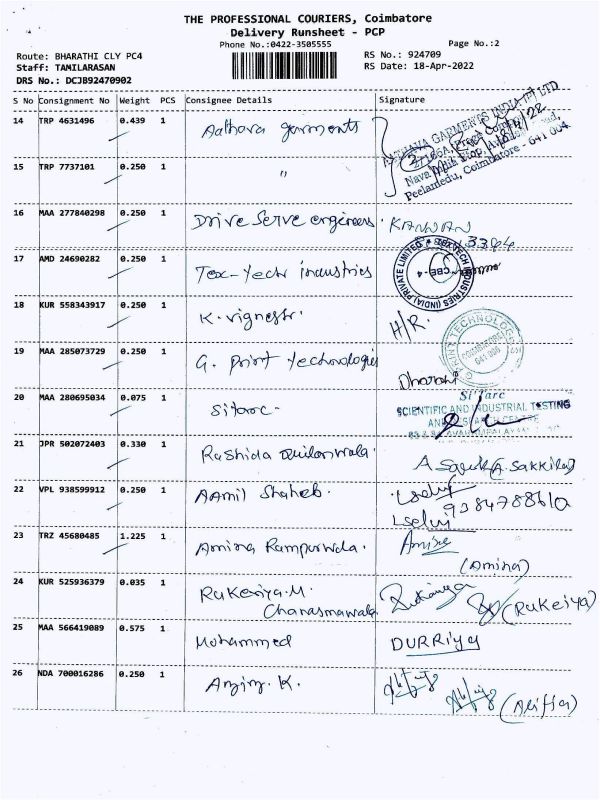 THE PROFESSIONAL COURIERS, Coimbatore
Delivery Runsheet - PCP
Phone No.:0422-3505555
Page No.:2
Route: BHARATHI CLY PC4
RS No.: 924709
Staff: TAMILARASAN
RS Date: 18-Apr-2022
DRS No.: DCJB92470902
S No Consignment No Weight PCS Consignee Details Signature
14 TRP 4631496 0.439 1 Aathava garments
AATHAVA GARMENTS INDIA (P) LTD
Peelamedu, Coimbatore - 641 004.
15 TRP 7737101 0.250 1 "
16 MAA 277840298 0.250 1 Drive Serve engineers. KANNAN
17 AMD 24690282 0.250 1 Tex-Tech industries
TEX-TECH INDUSTRIES (INDIA) PRIVATE LIMITED
CBE-4
18 KUR 558343917 0.250 1 K. vignesh. H/R.
19 MAA 285073729 0.250 1 G. Print Technologies
Dharani
20 MAA 280695034 0.075 1 Sitarc - Si'Tarc
SCIENTIFIC AND INDUSTRIAL TESTING
AND RESEARCH CENTRE
21 JPR 502072403 0.330 1 Rashida (A. Sakkila)
22 VPL 938599912 0.250 1 Aamil Shaheb. Lselvj
9384788610
Lselvj
23 TRZ 45680485 1.225 1 Amina Rampurwala.
(Amina)
24 KUR 525936379 0.035 1 Rukeiya. M.
Charasmawala (RUKEIYA)
25 MAA 566419089 0.575 1 Mohammed DURRIYA
26 NDA 700016286 0.250 1 (Aliffia)